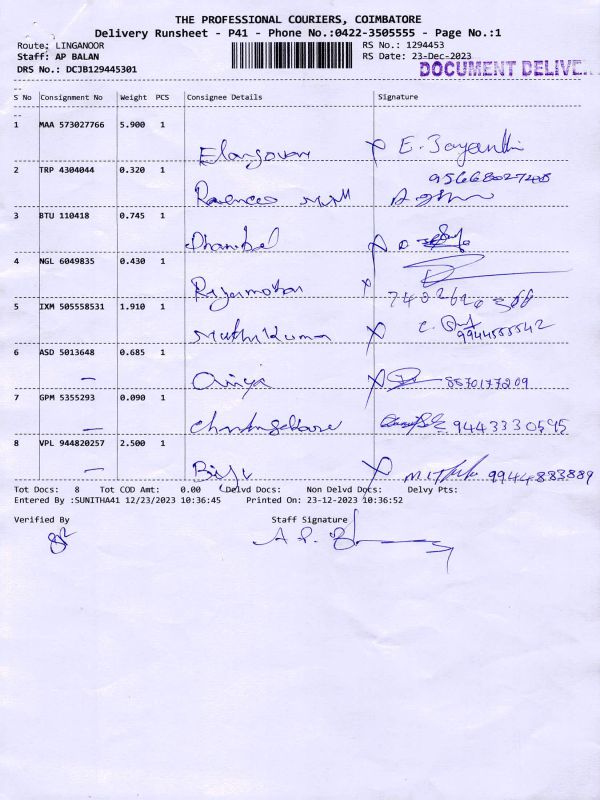 THE PROFESSIONAL COURIERS, COIMBATORE
Delivery Runsheet - P41 - Phone No.:0422-3505555 - Page No.:1
Route: LINGANOOR RS No.: 1294453
Staff: AP BALAN RS Date: 23-Dec-2023
DRS No.: DCJB129445301 DOCUMENT DELIVE
S No Consignment No Weight PCS Consignee Details Signature
1 MAA 573027766 5.900 1 Elangovan E. Jayanthi
2 TRP 4304044 0.320 1
3 BTU 110418 0.745 1
4 NGL 6049835 0.430 1 Rajamohan
5 IXM 505558531 1.910 1 Muthukumar
9944555542
6 ASD 5013648 0.685 1 8870177209
7 GPM 5355293 0.090 1 9443330595
8 VPL 944820257 2.500 1 Biju 9944883889
Tot Docs: 8 Tot COD Amt: 0.00 Delvd Docs: Non Delvd Docs: Delvy Pts:
Entered By :SUNITHA41 12/23/2023 10:36:45 Printed On: 23-12-2023 10:36:52
Verified By Staff Signature